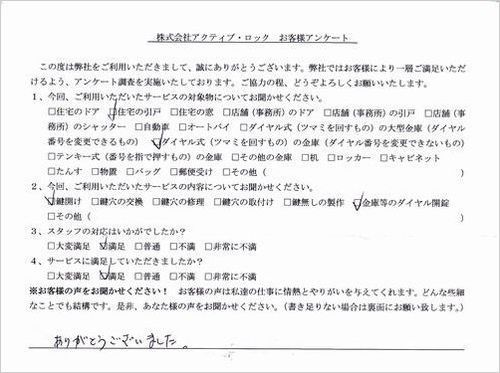 株式会社アクティブ・ロック　お客様アンケート
この度は弊社をご利用いただきまして、誠にありがとうございます。弊社ではお客様により一層ご満足いただ
けるよう、アンケート調査を実施いたしております。ご協力の程、どうぞよろしくお願いいたします。
1、今回、ご利用いただいたサービスの対象物についてお聞かせください。
□住宅のドア　☑住宅の引戸　□住宅の窓　□店舗（事務所）のドア　□店舗（事務所）の引戸　□店舗（事
務所）のシャッター　□自動車　□オートバイ　□ダイヤル式（ツマミを回すもの）の大型金庫（ダイヤル
番号を変更できるもの）　☑ダイヤル式（ツマミを回すもの）の金庫（ダイヤル番号を変更できないもの）
□テンキー式（番号を指で押すもの）の金庫　□その他の金庫　□机　□ロッカー　□キャビネット
□たんす　□物置　□バッグ　□郵便受け　□その他（　　　　　　　　　　　　　　　　）
2、今回、ご利用いただいたサービスの内容についてお聞かせください。
☑鍵開け　□鍵穴の交換　□鍵穴の修理　□鍵穴の取付け　□鍵無しの製作　☑金庫等のダイヤル開錠
□その他（　　　　　　　　　　　　　　　　　　　　　　　　　　　　　　　　）
3、スタッフの対応はいかがでしたか？
□大変満足　☑満足　□普通　□不満　□非常に不満
4、サービスに満足していただきましたか？
□大変満足　☑満足　□普通　□不満　□非常に不満
※お客様の声をお聞かせください！　お客様の声は私達の仕事に情熱とやりがいを与えてくれます。どんな些細
なことでも結構です。是非、あなた様の声をお聞かせください。（書き足りない場合は裏面にお願い致します。）
ありがとうございました。